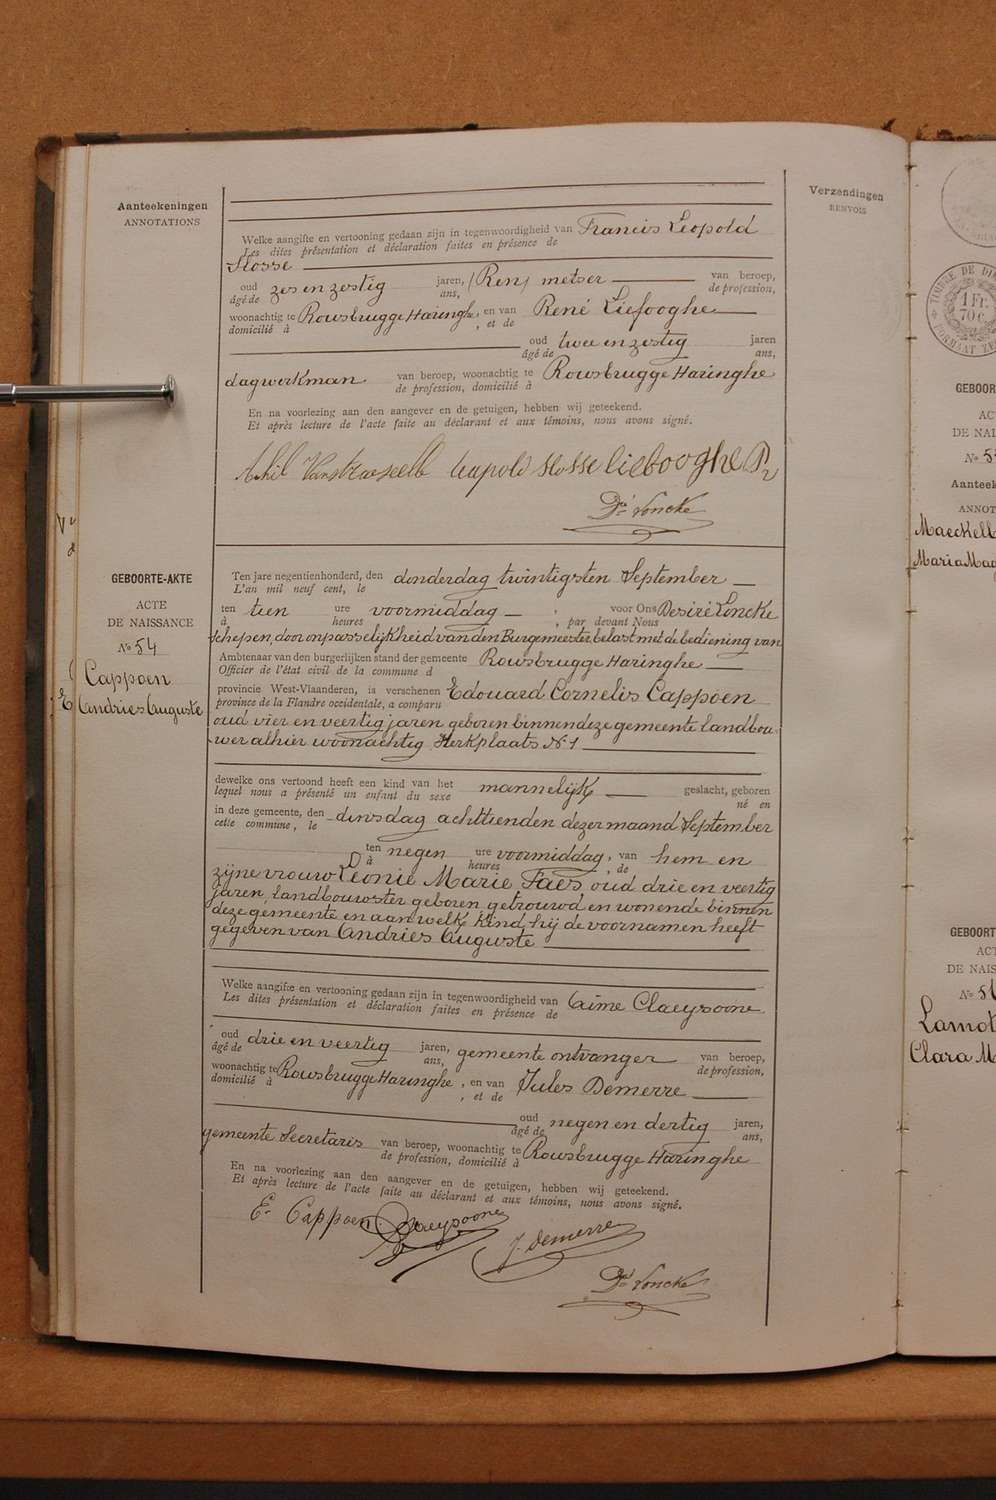 Aanteekeningen
ANNOTATIONS
Verzendingen
RENVOIS
Welke aangifte en vertooning gedaan zijn in tegenwoordigheid van Francis Leopold
Les dites présentation et déclaration faites en présence de
Slosse
oud zes en zestig jaren, (Ren) metser van beroep,
âgé de ans, de profession,
woonachtig te Rousbrugge Haringhe, en van René Liefooghe
domicilié à , et de
oud twee en zestig jaren
âgé de ans,
dagwerkman van beroep, woonachtig te Rousbrugge Haringhe
de profession, domicilié à
En na voorlezing aan den aangever en de getuigen, hebben wij geteekend.
Et après lecture de l'acte faite au déclarant et aux témoins, nous avons signé.
Achil Leopold Slosse Liefooghe R
Dré Loncke
GEBOORTE-AKTE
ACTE
DE NAISSANCE
No 54
Cappoen
Andries Auguste
Ten jare negentienhonderd, den donderdag twintigsten September
L'an mil neuf cent, le
ten tien ure voormiddag , voor Ons Desiré Loncke
à heures , par devant Nous
schepen, door onpasselijkheid van den Burgmeester belast met de bediening van
Ambtenaar van den burgerlijken stand der gemeente Rousbrugge Haringhe
Officier de l'état civil de la commune d
provincie West-Vlaanderen, is verschenen Edouard Cornelis Cappoen
province de la Flandre occidentale, a comparu
oud vier en veertig jaren geboren binnen deze gemeente landbou-
wer alhier woonachtig Kerkplaats No 1
dewelke ons vertoond heeft een kind van het mannelijk geslacht, geboren
lequel nous a présenté un enfant du sexe né en
in deze gemeente, den dinsdag achttienden dezer maand September
cette commune, le
ten negen ure voormiddag, van hem en
à heures , de
zijne vrouw Léonie Marie Faes, oud drie en veertig
jaren, landbouwster geboren getrouwd en wonende binnen
deze gemeente en aan welk kind hij de voornamen heeft
gegeven van Andries Auguste
Welke aangifte en vertooning gedaan zijn in tegenwoordigheid van Aimé Claeysoone
Les dites présentation et déclaration faites en présence de
oud drie en veertig jaren, gemeente ontvanger van beroep,
âgé de ans, de profession,
woonachtig te Rousbrugge Haringhe, en van Jules Demerre
domicilié à , et de
oud negen en dertig jaren,
âgé de ans,
gemeente Secretaris van beroep, woonachtig te Rousbrugge Haringhe
de profession, domicilié à
En na voorlezing aan den aangever en de getuigen, hebben wij geteekend.
Et après lecture de l'acte faite au déclarant et aux témoins, nous avons signé.
E. Cappoen Claeysoone J. Demerre
Dré Loncke
TIMBRE DE DI
1 Fr.
70 c.
FORMAAT ZE
GEBOOR
AC
DE NAI
No 5
Aanteek
ANNOT
Maeckelb
Maria Ma
GEBOORT
ACT
DE NAIS
No 5
Lamot
Clara M